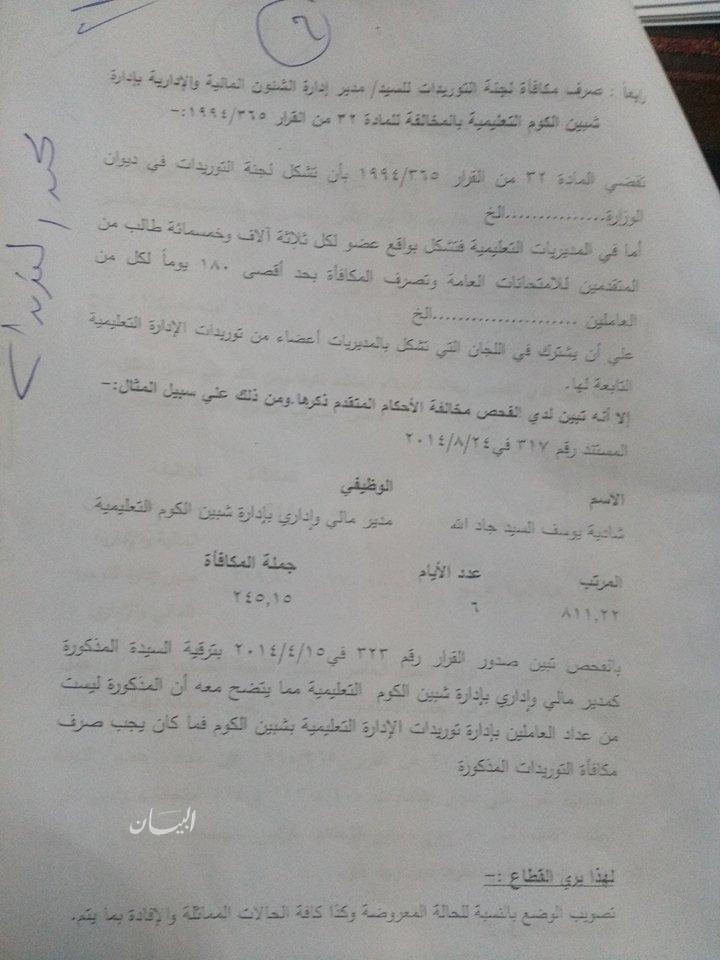 ٦
رابعاً : صرف مكافأة لجنة التوريدات للسيد/ مدير إدارة الشئون المالية والإدارية بإدارة
شبين الكوم التعليمية بالمخالفة للمادة ٣٢ من القرار ١٩٩٤/٣٦٥:-
تقضي المادة ٣٢ من القرار ١٩٩٤/٣٦٥ بأن تشكل لجنة التوريدات في ديوان
الوزارة................الخ
أما في المديريات التعليمية فتشكل بواقع عضو لكل ثلاثة آلاف وخمسمائة طالب من
المتقدمين للامتحانات العامة وتصرف المكافأة بحد أقصى ١٨٠ يوماً لكل من
العاملين ......................الخ
علي أن يشترك في اللجان التي تشكل بالمديريات أعضاء من توريدات الإدارة التعليمية
التابعة لها.
إلا أنه تبين لدي الفحص مخالفة الأحكام المتقدم ذكرها.ومن ذلك علي سبيل المثال:-
المستند رقم ٣١٧ في٢٠١٤/٨/٢٤
الاسم الوظيفي
شادية يوسف السيد جاد الله مدير مالي وإداري بإدارة شبين الكوم التعليمية
المرتب عدد الأيام جملة المكافأة
٨١١,٢٢ ٦ ٢٤٥,١٥
بالفحص تبين صدور القرار رقم ٣٢٣ في٢٠١٤/٤/١٥ بترقية السيدة المذكورة
كمدير مالي وإداري بإدارة شبين الكوم التعليمية مما يتضح معه أن المذكورة ليست
من عداد العاملين بإدارة توريدات الإدارة التعليمية بشبين الكوم فما كان يجب صرف
مكافأة التوريدات المذكورة
البيان
لهذا يري القطاع :-
تصويب الوضع بالنسبة للحالة المعروضة وكذا كافة الحالات المماثلة والإفادة بما يتم.